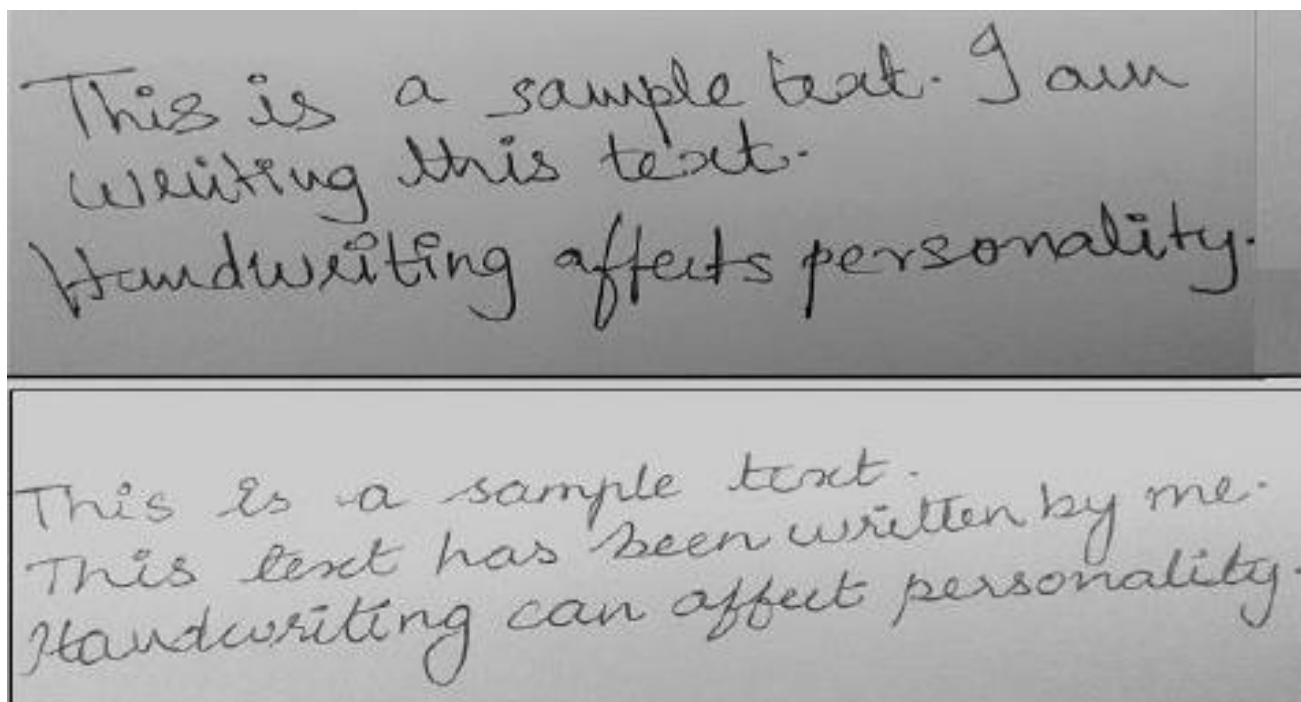 This is a sample text. I am
writing this text.
Handwriting affects personality.
This is a sample text.
This text has been written by me.
Handwriting can affect personality.